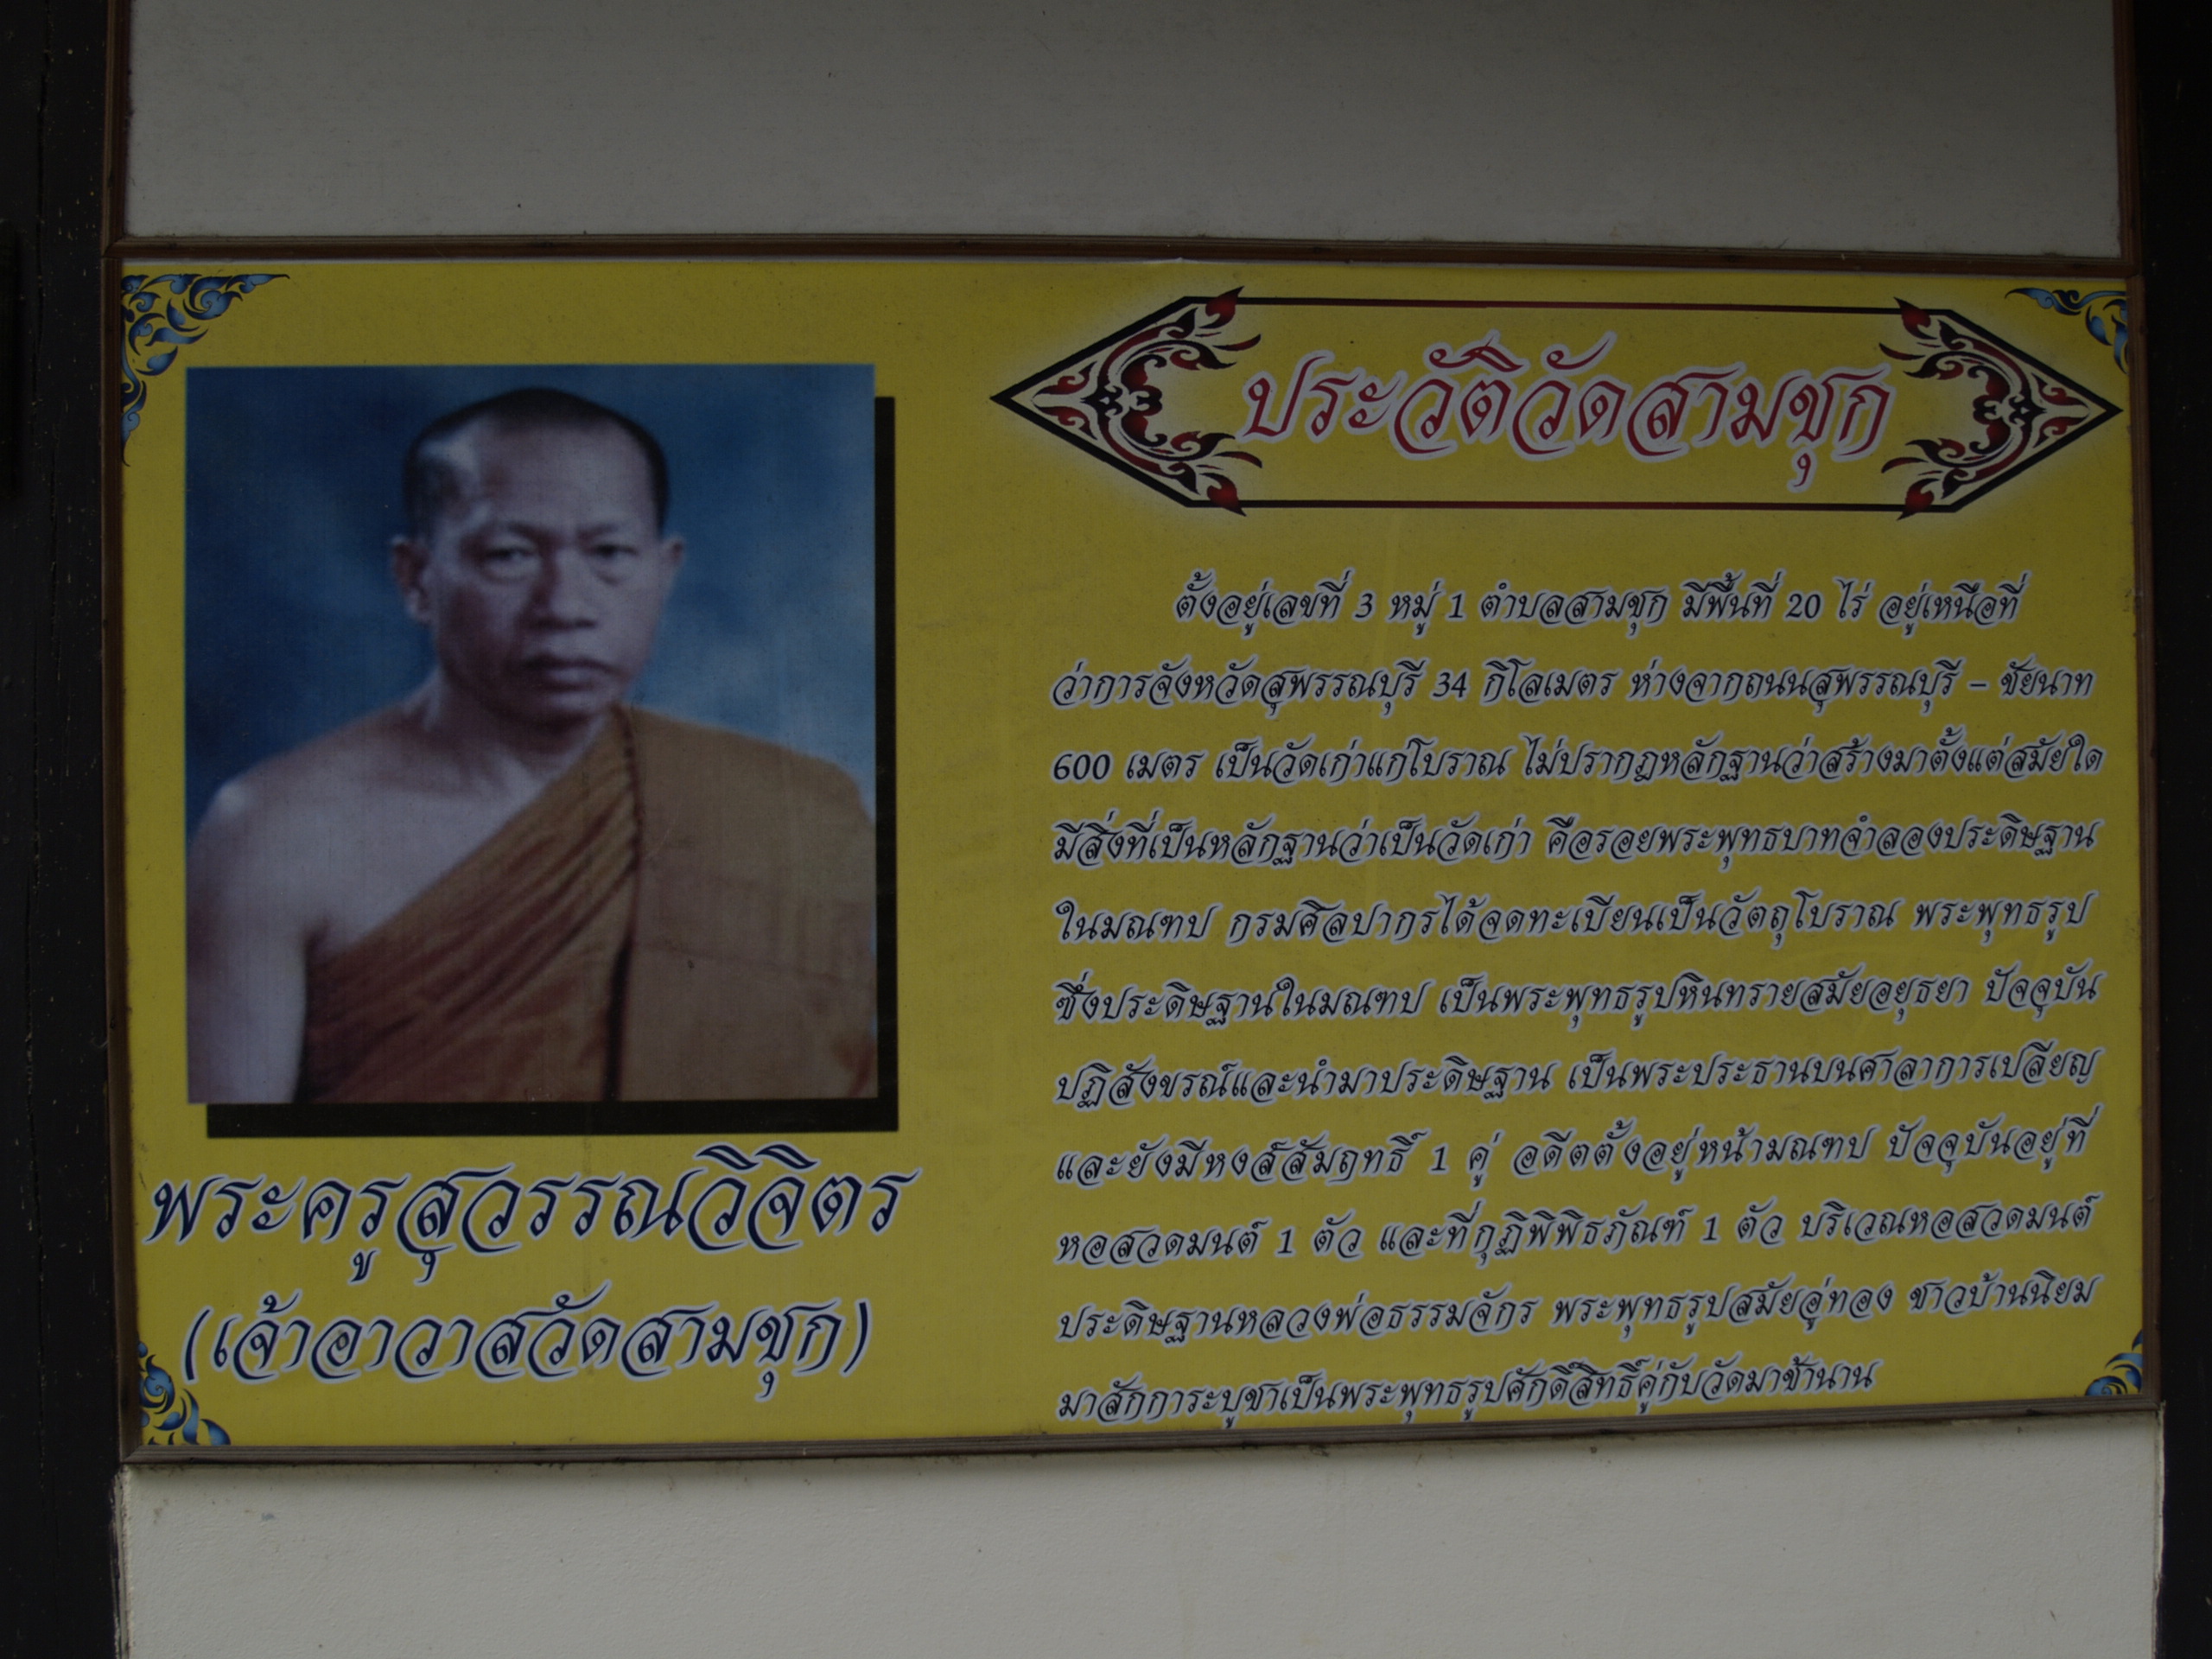 ประวัติวัดสามชุก
ตั้งอยู่เลขที่ 3 หมู่ 1 ตำบลสามชุก มีพื้นที่ 20 ไร่ อยู่เหนือที่
ว่าการจังหวัดสุพรรณบุรี 34 กิโลเมตร ห่างจากถนนสุพรรณบุรี – ชัยนาท
600 เมตร เป็นวัดเก่าแก่โบราณ ไม่ปรากฏหลักฐานว่าสร้างมาตั้งแต่สมัยใด
มีสิ่งที่เป็นหลักฐานว่าเป็นวัดเก่า คือรอยพระพุทธบาทจำลองประดิษฐาน
ในมณฑป กรมศิลปากรได้จดทะเบียนเป็นวัตถุโบราณ พระพุทธรูป
ซึ่งประดิษฐานในมณฑป เป็นพระพุทธรูปหินทรายสมัยอยุธยา ปัจจุบัน
ปฏิสังขรณ์และนำมาประดิษฐาน เป็นพระประธานบนศาลาการเปลียญ
และยังมีหงส์สัมฤทธิ์ 1 คู่ อดีตตั้งอยู่หน้ามณฑป ปัจจุบันอยู่ที่
หอสวดมนต์ 1 ตัว และที่กุฏิพิพิธภัณฑ์ 1 ตัว บริเวณหอสวดมนต์
ประดิษฐานหลวงพ่อธรรมจักร พระพุทธรูปสมัยอู่ทอง ชาวบ้านนิยม
มาสักการะบูชาเป็นพระพุทธรูปศักดิ์สิทธิ์คู่กับวัดมาช้านาน
พระครูสุวรรณวิจิตร
(เจ้าอาวาสวัดสามชุก)